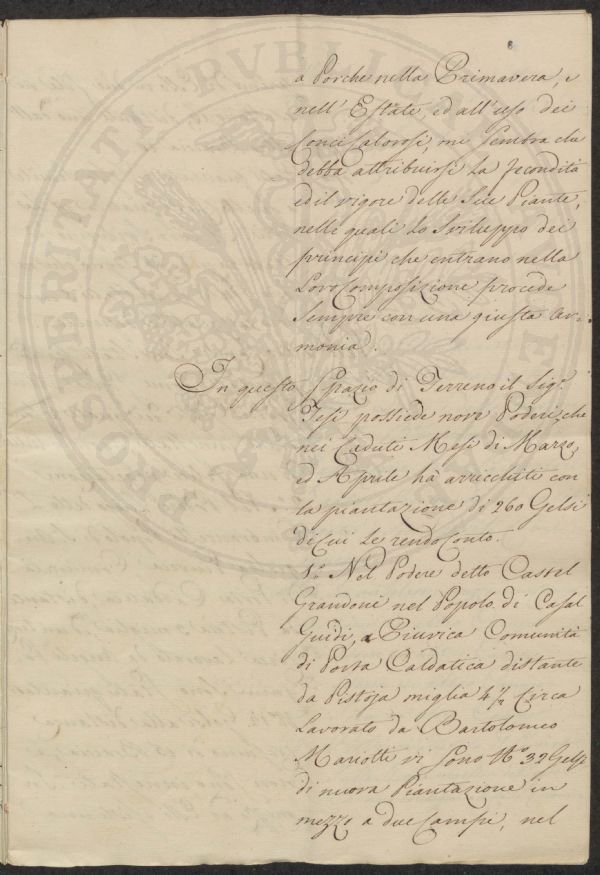 8
a Porche nella Primavera, e
nell' Estate, ed all' uso dei
Conci Calorosi, mi Sembra che
debba attribuirsi La fecondità
ed il vigore delle Sue Piante,
nelle quali Lo Sviluppo dei
principi che entrano nella
Loro Composizione procede
Sempre con una giusta Ar-
monia.
In questo Spazio di Terreno il Sigr.
Tesi possiede nove Poderi, che
nei Caduti Mesi di Marzo,
ed Aprile hà arricchiti con
La piantazione di 260 Gelsi
di Cui Le rendo Conto.
1º Nel Podere detto Castel
Grandoni nel Popolo di Casal
Guidi, a Piuvica Comunità
di Porta Caldatica distante
da Pistoja miglia 4½ Circa
Lavorato da Bartolomeo
Mariotti vi Sono Nº 32 Gelsi
di nuova Piantazione in
mezzo a due Campi, nel
PRO PERITATI PVBLICAE